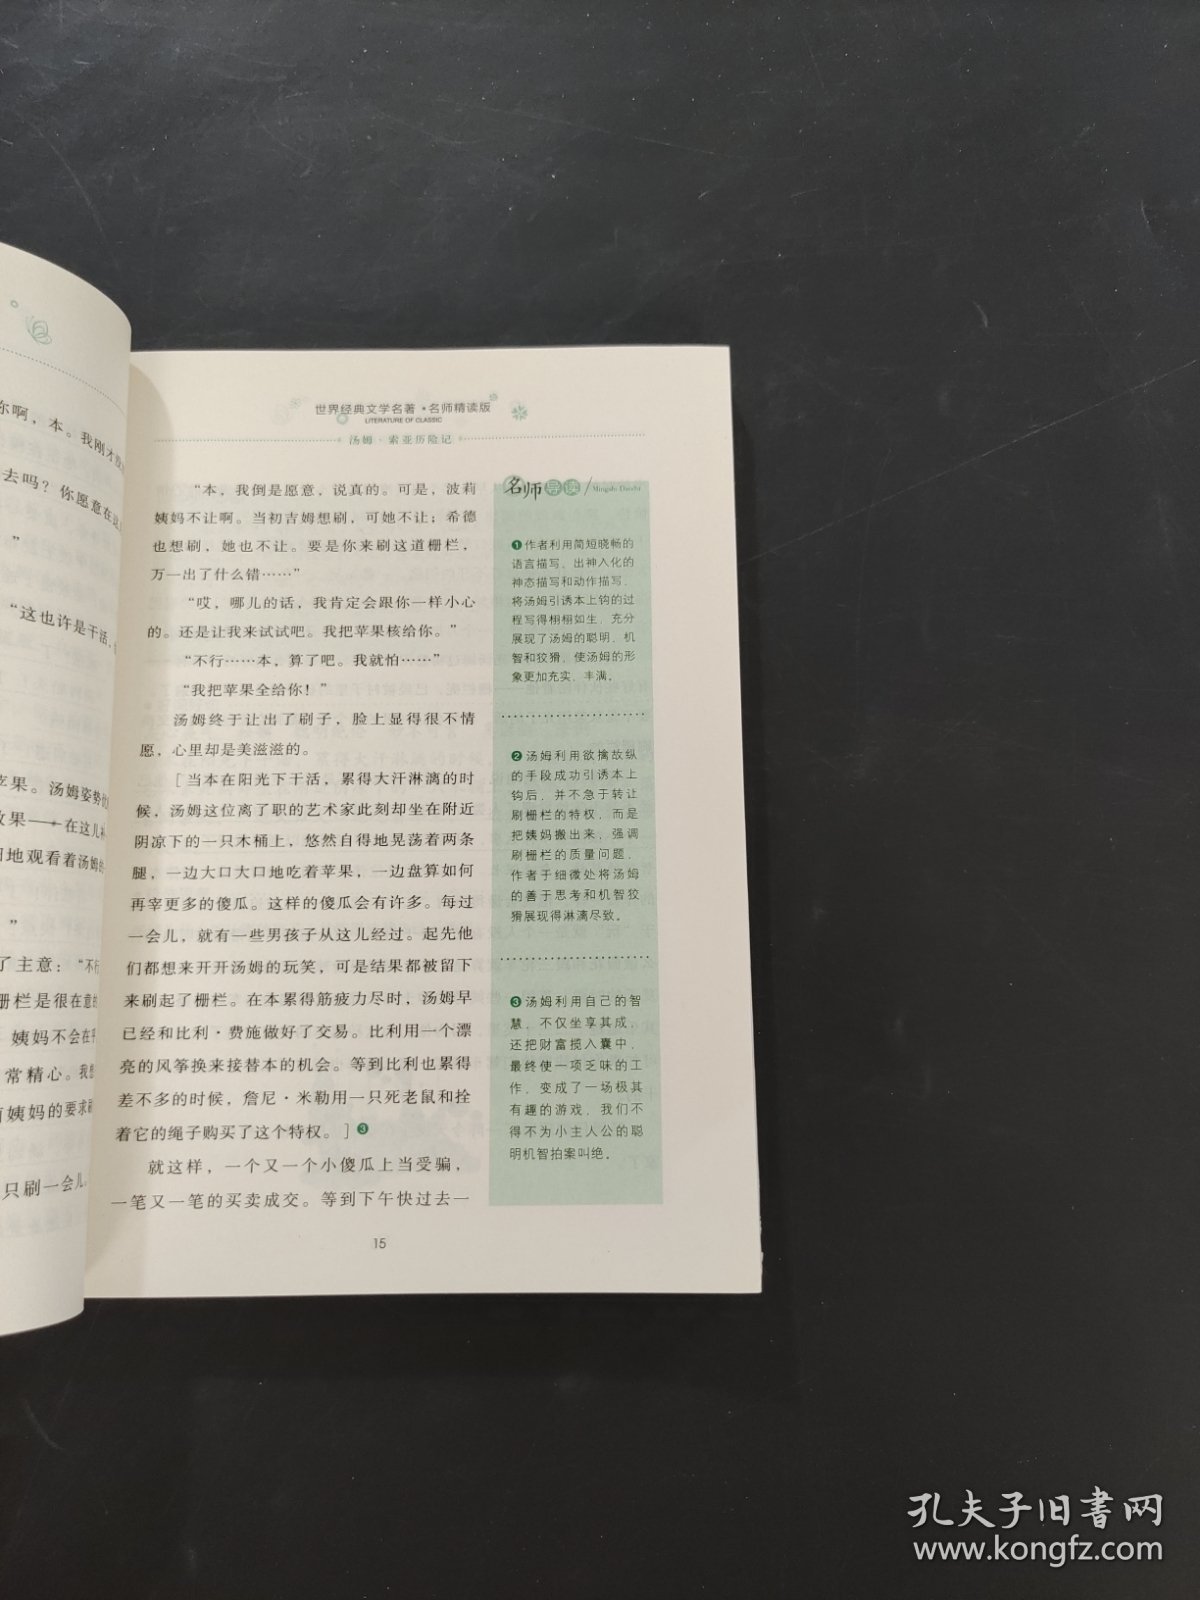 你啊，本。我刚才
去吗？你愿意在这
”
“这也许是干活，
苹果。汤姆姿势
效果——在这儿
地观看着汤姆的
”
了主意：“不行
栅栏是很在意的
姨妈不会在乎
常精心。我
姨妈的要求刷
只刷一会儿，
世界经典文学名著·名师精读版
LITERATURE OF CLASSIC
汤姆·索亚历险记
“本，我倒是愿意，说真的。可是，波莉
姨妈不让啊。当初吉姆想刷，可她不让；希德
也想刷，她也不让。要是你来刷这道栅栏，
万一出了什么错……”
“哎，哪儿的话，我肯定会跟你一样小心
的。还是让我来试试吧。我把苹果核给你。”
“不行……本，算了吧。我就怕……”
“我把苹果全给你！”
汤姆终于让出了刷子，脸上显得很不情
愿，心里却是美滋滋的。
［当本在阳光下干活，累得大汗淋漓的时
候，汤姆这位离了职的艺术家此刻却坐在附近
阴凉下的一只木桶上，悠然自得地晃荡着两条
腿，一边大口大口地吃着苹果，一边盘算如何
再宰更多的傻瓜。这样的傻瓜会有许多。每过
一会儿，就有一些男孩子从这儿经过。起先他
们都想来开开汤姆的玩笑，可是结果都被留下
来刷起了栅栏。在本累得筋疲力尽时，汤姆早
已经和比利·费施做好了交易。比利用一个漂
亮的风筝换来接替本的机会。等到比利也累得
差不多的时候，詹尼·米勒用一只死老鼠和拴
着它的绳子购买了这个特权。］❸
就这样，一个又一个小傻瓜上当受骗，
一笔又一笔的买卖成交。等到下午快过去一
15
名师导读/Mingshi Daodu
❶作者利用简短晓畅的
语言描写、出神入化的
神态描写和动作描写，
将汤姆引诱本上钩的过
程写得栩栩如生，充分
展现了汤姆的聪明、机
智和狡猾，使汤姆的形
象更加充实、丰满。
❷汤姆利用欲擒故纵
的手段成功引诱本上
钩后，并不急于转让
刷栅栏的特权，而是
把姨妈搬出来，强调
刷栅栏的质量问题，
作者于细微处将汤姆
的善于思考和机智狡
猾展现得淋漓尽致。
❸汤姆利用自己的智
慧，不仅坐享其成，
还把财富揽入囊中，
最终使一项乏味的工
作，变成了一场极其
有趣的游戏，我们不
得不为小主人公的聪
明机智拍案叫绝。
孔夫子旧书网
www.kongfz.com